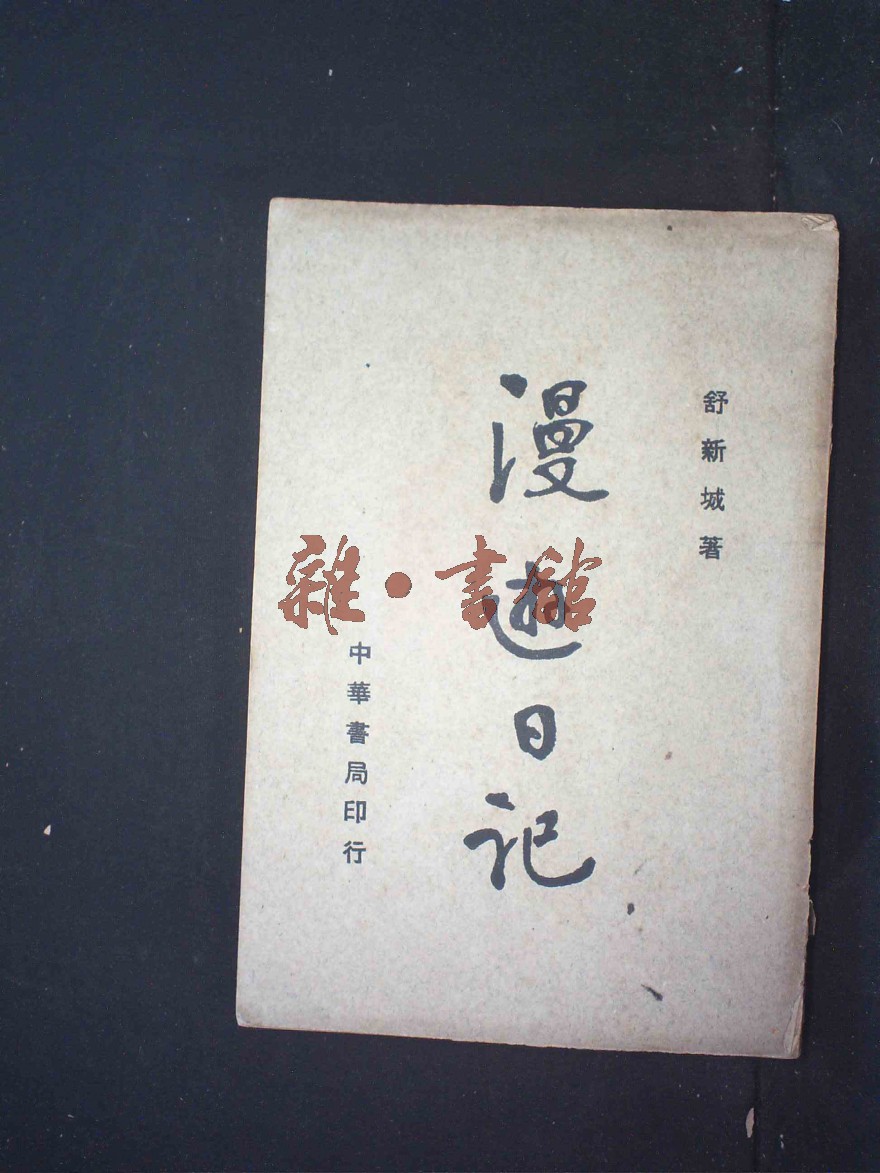 舒新城著
漫遊日记
中華書局印行
雜·書館